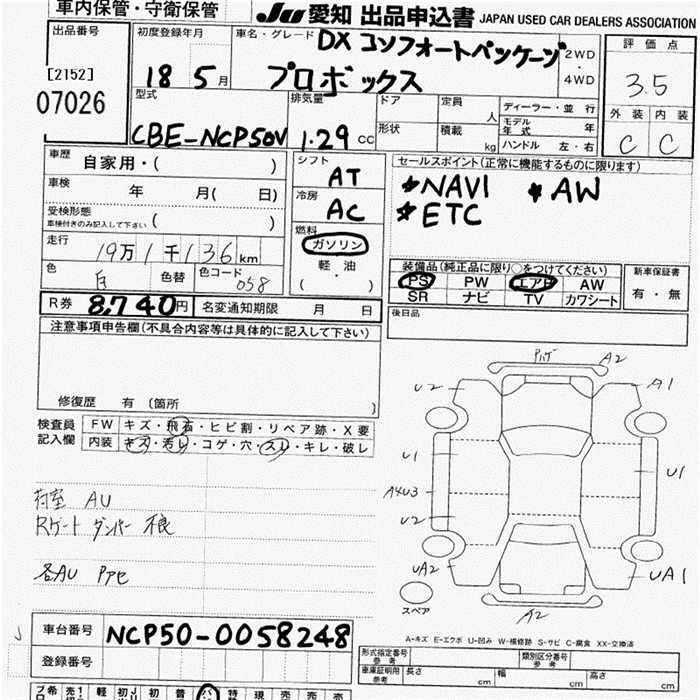 車内保管・守衛保管
JU 愛知 出品申込書 JAPAN USED CAR DEALERS ASSOCIATION
出品番号
[2152]
07026
初度登録年月
18 5月
車名・グレード
DX コンフォートパッケージ
プロボックス
2WD
・
4WD
評価点
3.5
外装 内装
C C
型式
CBE-NCP50V
排気量
1.29 CC
ドア
形状
定員
人
積載
kg
ディーラー・並行
モデル年式 年
ハンドル 左・右
車歴
自家用・( )
車検
年 月( 日)
受検形態
車検付きのみ記入して下さい ( )
走行
19万1千136km
色
白
色替
色コード
058
シフト
AT
冷房
AC
燃料
ガソリン
・
軽・油
( )
セールスポイント(正常に機能するものに限ります)
*NAVI *AW
*ETC
装備品(純正品に限り○をつけてください)
PS PW エアB AW
SR ナビ TV カワシート
新車保証書
有・無
後日品
R券 8,740円 名変通知期限 月 日
注意事項申告欄(不具合内容等は具体的に記入して下さい)
修復歴 有 (箇所 )
検査員
記入欄
FW キズ・飛石・ヒビ割・リペア跡・X要
内装 キズ・汚レ・コゲ・穴・スレ・キレ・破レ
荷室 AU
Rゲート ダンパー 不良
各AU Pアセ
A2
U2 A1
U1 U1
A4U3
U2
UA2 UA1
A2
スペア
A-キズ E-エクボ U-凹み W-補修跡 S-サビ C-腐食 XX-交換済
車台番号 NCP50-0058248
登録番号
形式指定番号
参考
類別区分番号
参考
車庫証明用
参考
長さ cm 幅 cm 高さ cm